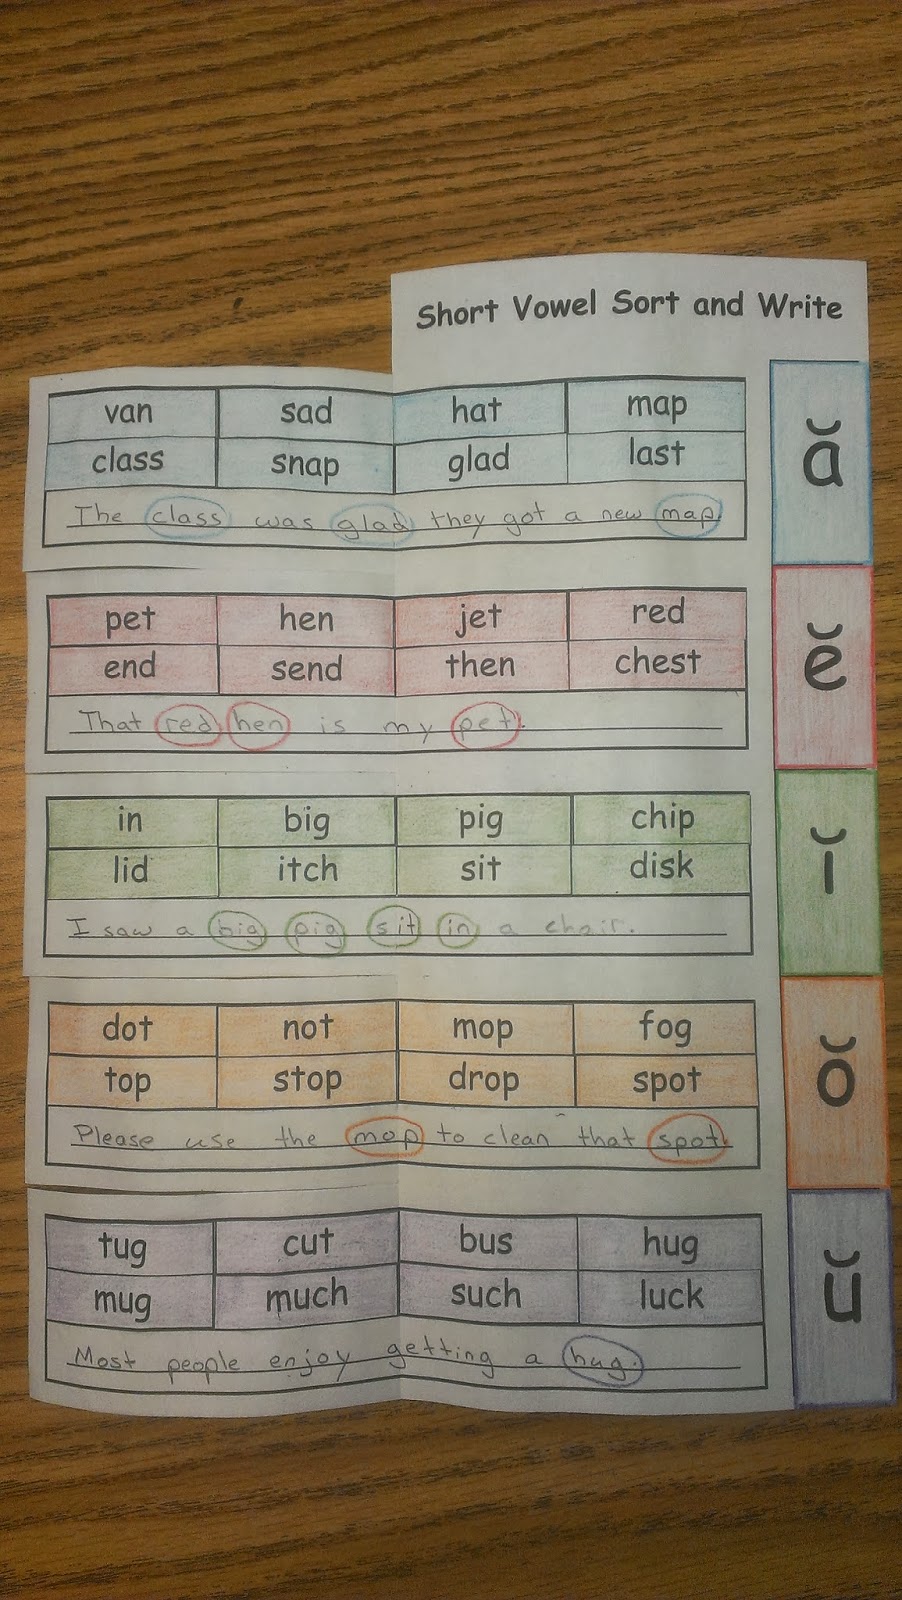 Short Vowel Sort and Write
van sad hat map
class snap glad last
The class was glad they got a new map.
ă
pet hen jet red
end send then chest
That red hen is my pet.
ĕ
in big pig chip
lid itch sit disk
I saw a big pig sit in a chair.
ĭ
dot not mop fog
top stop drop spot
Please use the mop to clean that spot.
ŏ
tug cut bus hug
mug much such luck
Most people enjoy getting a hug.
ŭ